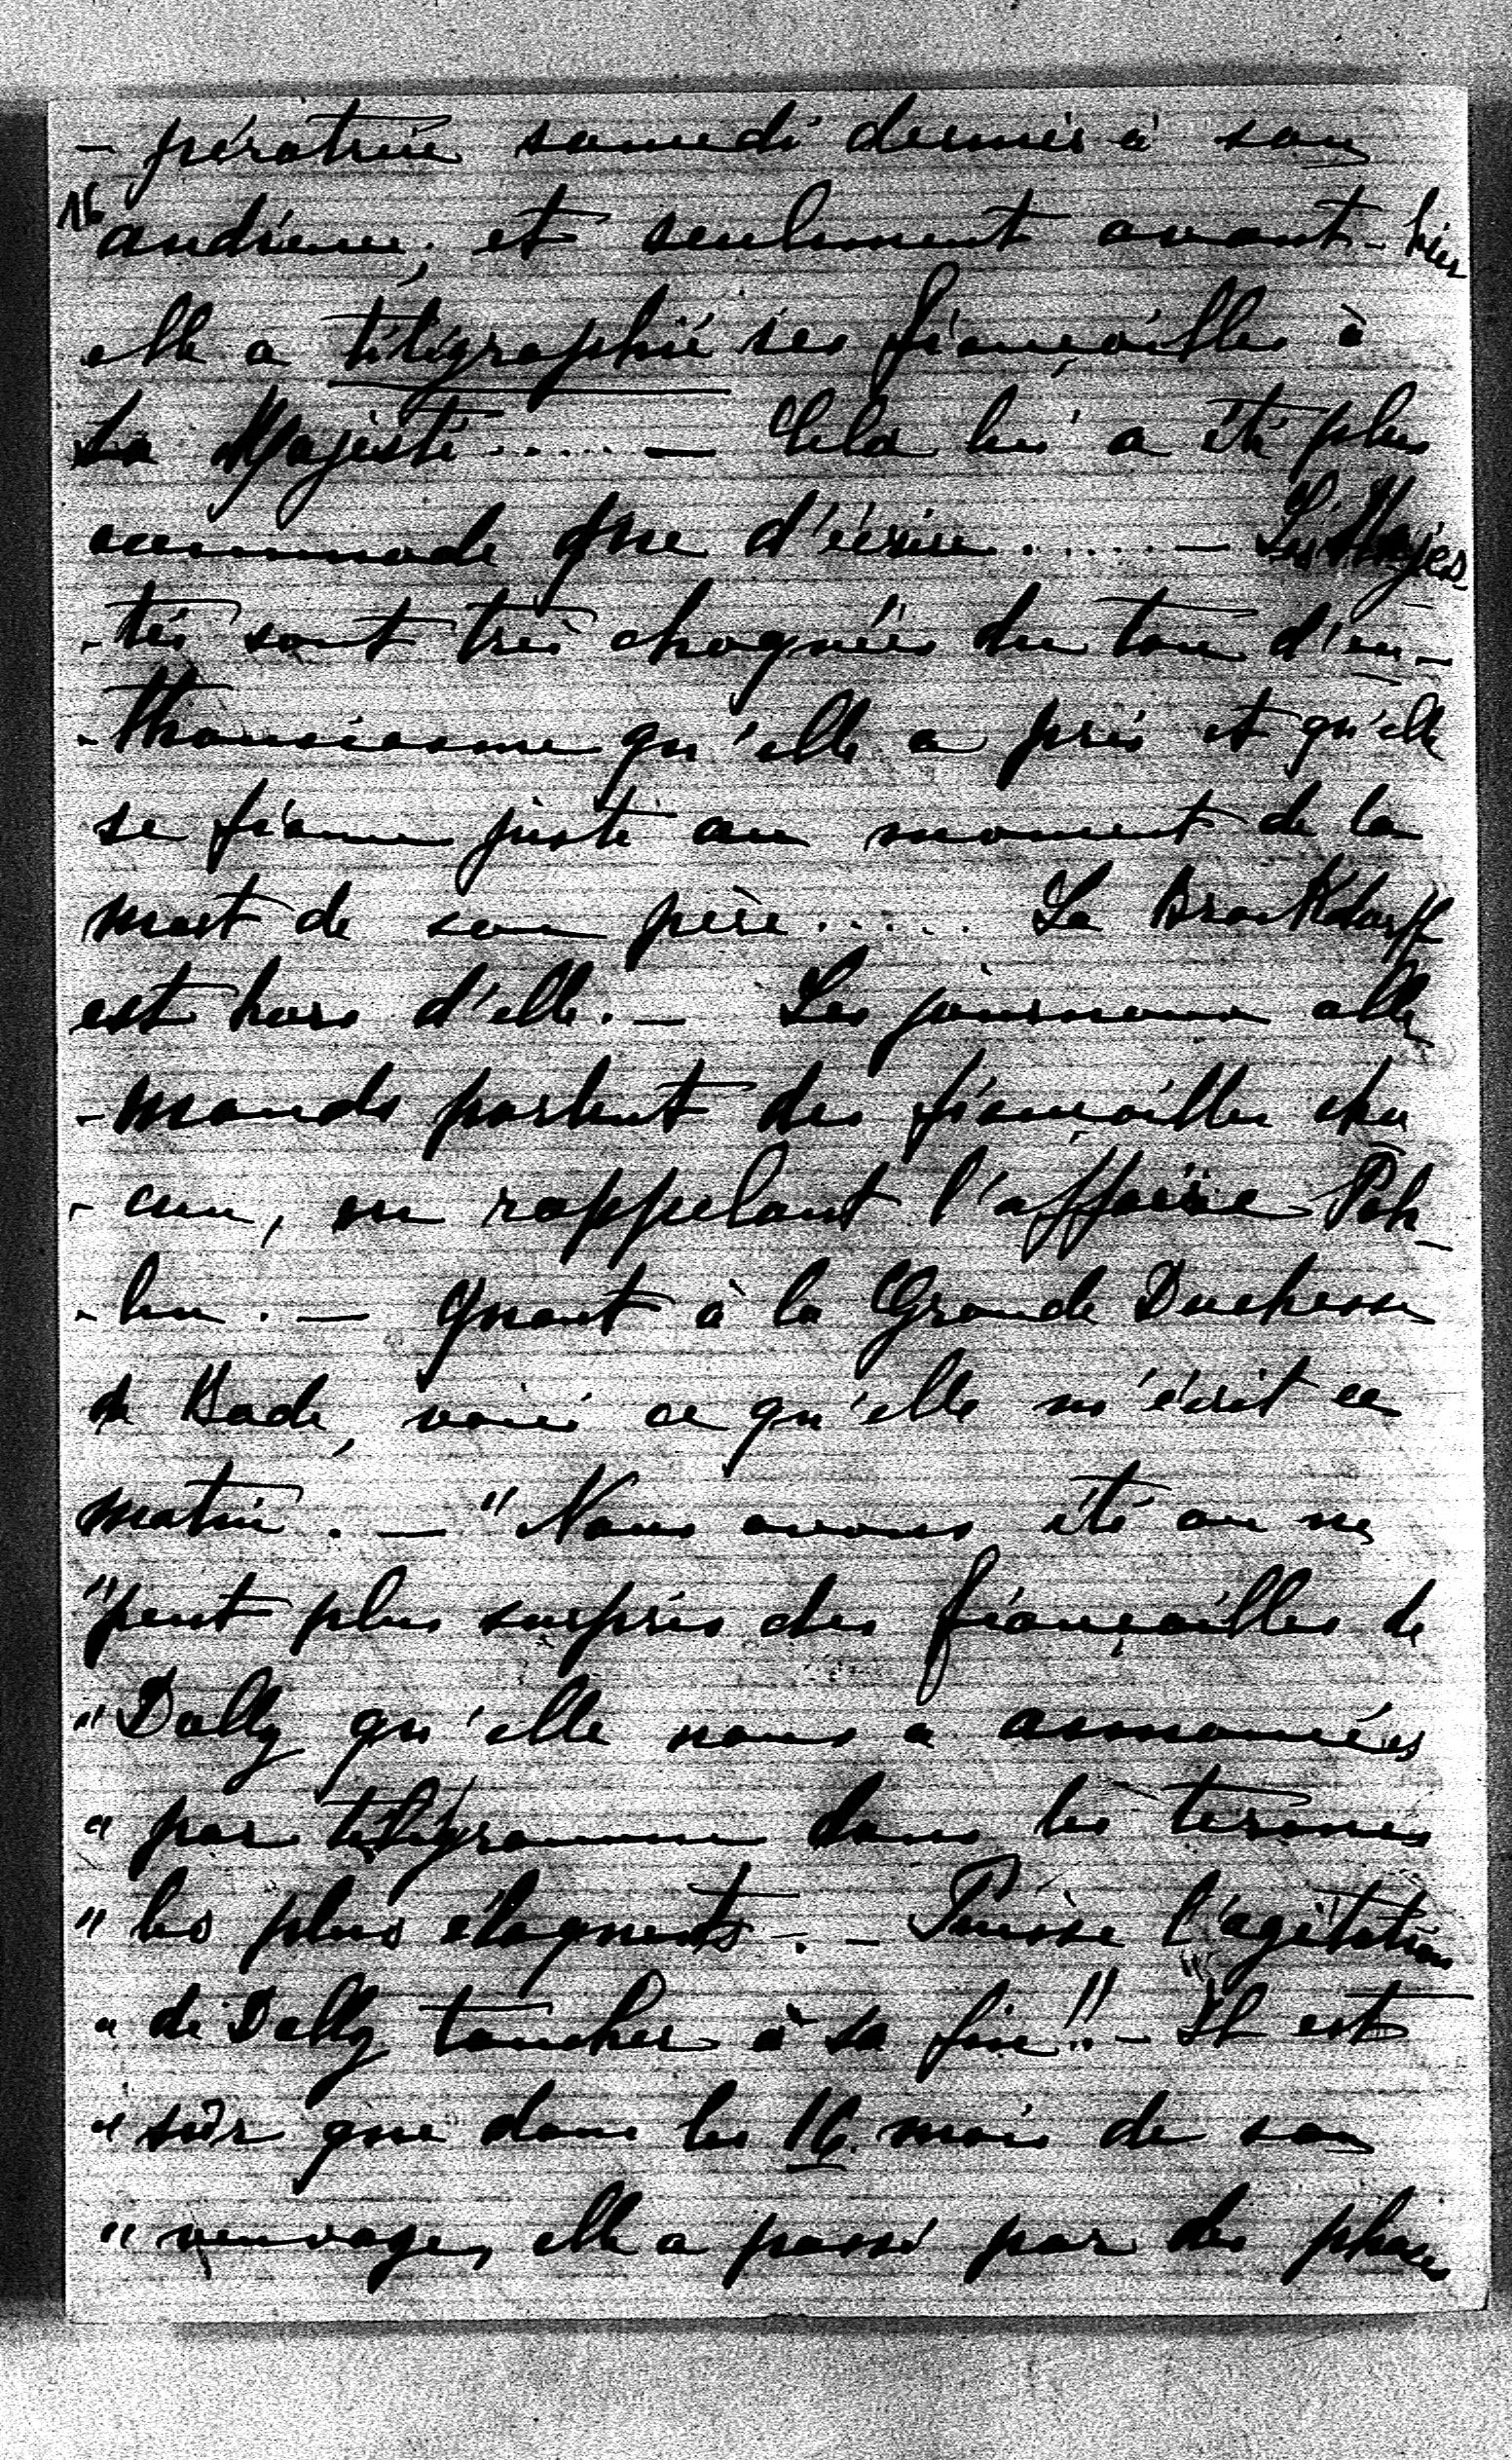 - pératrice samedi dernier à son
16
audience, et seulement avant-hier
elle a télégraphié ses fiançailles à
Sa Majesté ..... - Cela lui a été plus
commode que d'écrire ...... - Les Majes
- tés sont très choquées du ton d'en-
- thousiasme qu'elle a pris et qu'elle
se fiance juste au moment de la
mort de son père ..... La Brockdorff
est hors d'elle. - Les journaux alle
- mands parlent des fiançailles cha
- cun, en rappelant l'affaire Pah-
- len. - Quant à la Grande Duchesse
de Bade, voici ce qu'elle m'écrit ce
matin. - "Nous avons été on ne
"peut plus surpris des fiançailles de
"Dolly qu'elle nous a annoncées
" par télégramme dans les termes
" les plus éloquents. - Puisse l'agitation
" de Dolly toucher à sa fin"!! - Il est
" sûr que dans les 16 mois de son
" veuvage, elle a passé par des phases